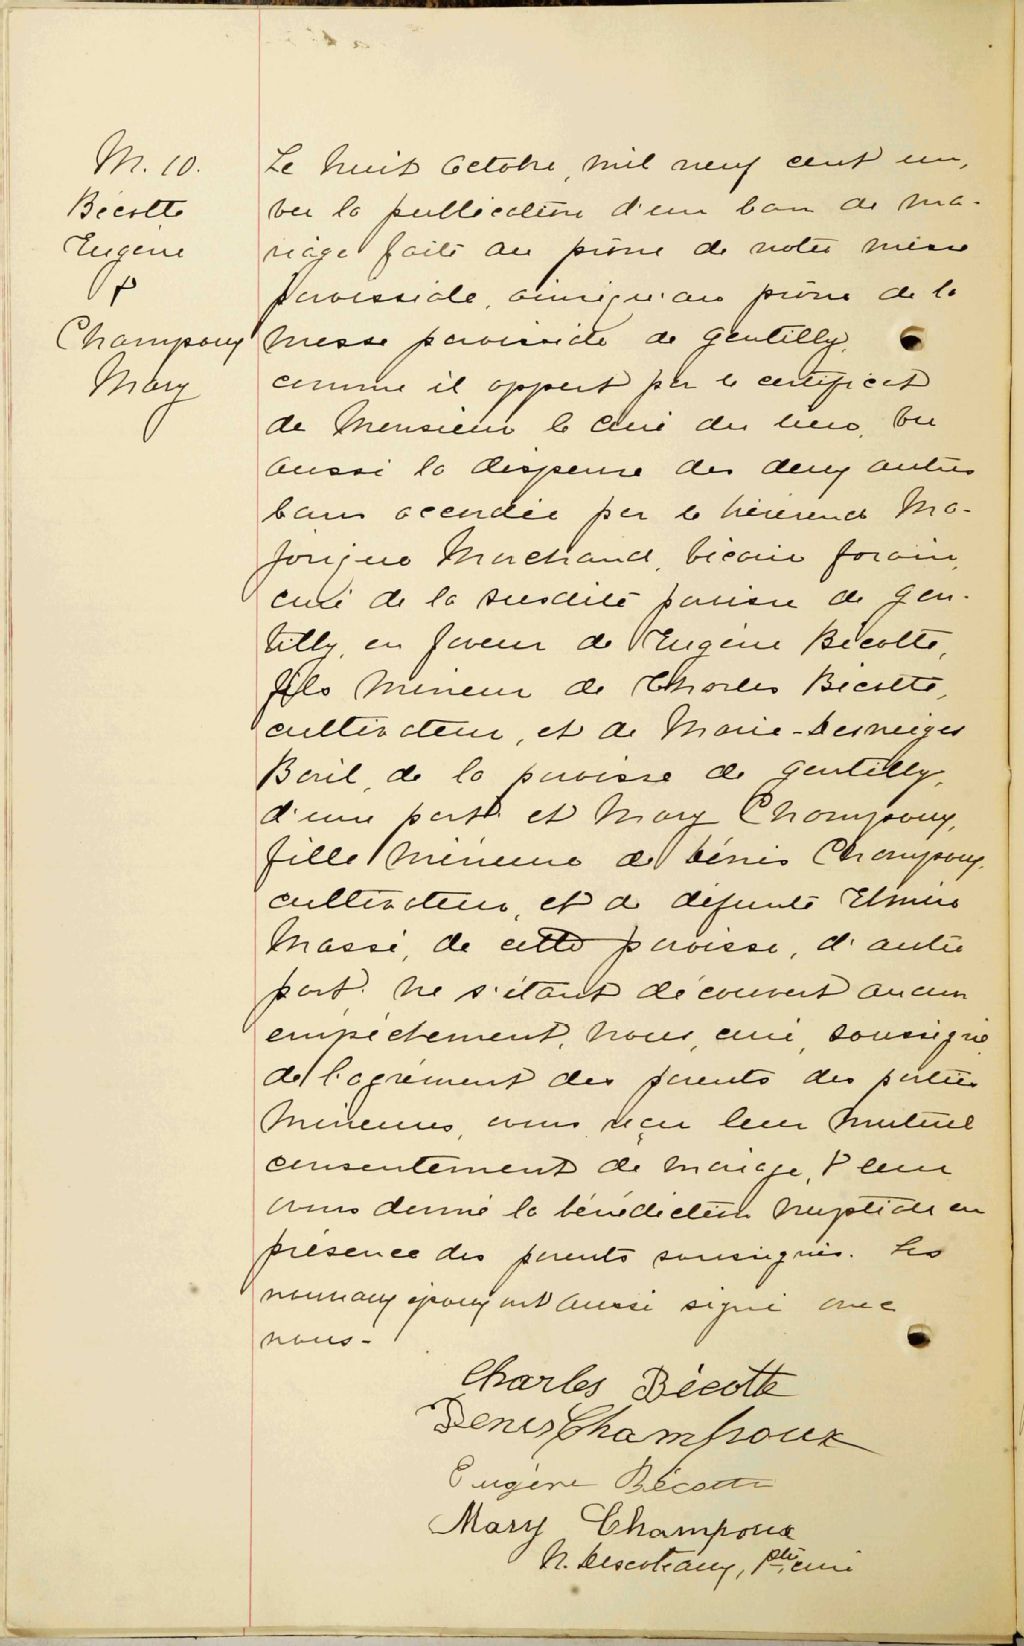 M. 10.
Bécotte
Eugène
&
Champoux
Mary
Le huit Octobre, mil neuf cent un,
vu la publication d'un ban de ma-
riage faite au prône de notre messe
paroissiale, ainsiqu'au prône de la
messe paroissiale de Gentilly,
comme il appert par le certificat
de Monsieur le Curé du lieu, vu
aussi la dispense des deux autres
bans accordée par le Révérend Ma-
jorique Marchand, vicaire forain,
curé de la susdite paroisse de Gen-
tilly, en faveur de Eugène Bécotte,
fils mineur de Charles Bécotte,
cultivateur, et de Marie-Desneiges
Baril, de la paroisse de Gentilly,
d'une part; et Mary Champoux,
fille mineure de Dénis Champoux,
cultivateur, et de défunte Elmire
Massé, de cette paroisse, d'autre
part. Ne s'étant découvert aucun
empêchement, nous, curé, soussigné
de l'agrément des parents des parties
mineures, avons reçu leur mutuel
consentement de mariage, & leur
avons donné la bénédiction nuptiale en
présence des parents soussignés. Les
nouveaux époux ont aussi signé avec
nous-
Charles Bécotte
Denis Champoux
Eugène Bécotte
Mary Champoux
N. Descoteaux, Ptre, curé